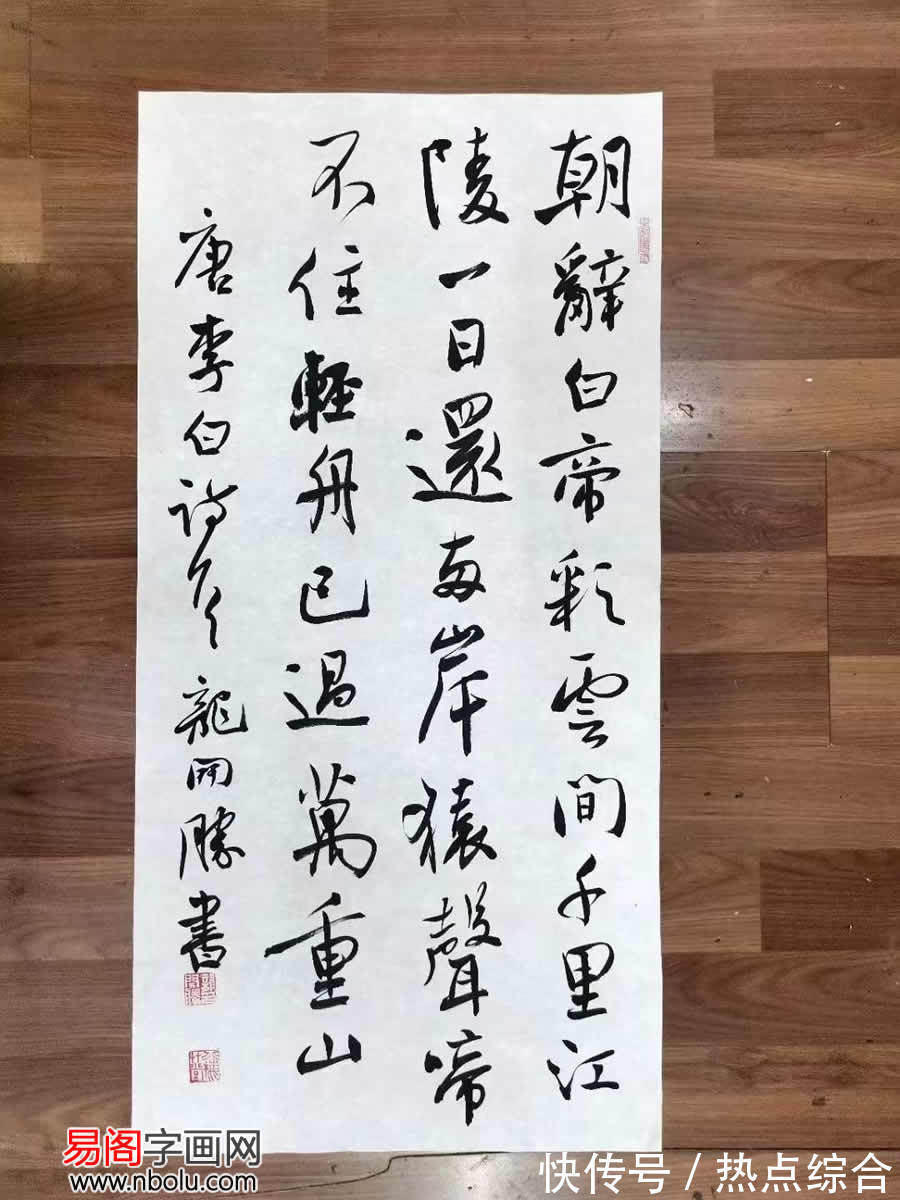 朝辭白帝彩雲間千里江
陵一日還兩岸猿聲啼
不住輕舟已過萬重山
唐李白詩 龍開勝書
易阁字画网
www.nbolu.com
快传号 / 热点综合